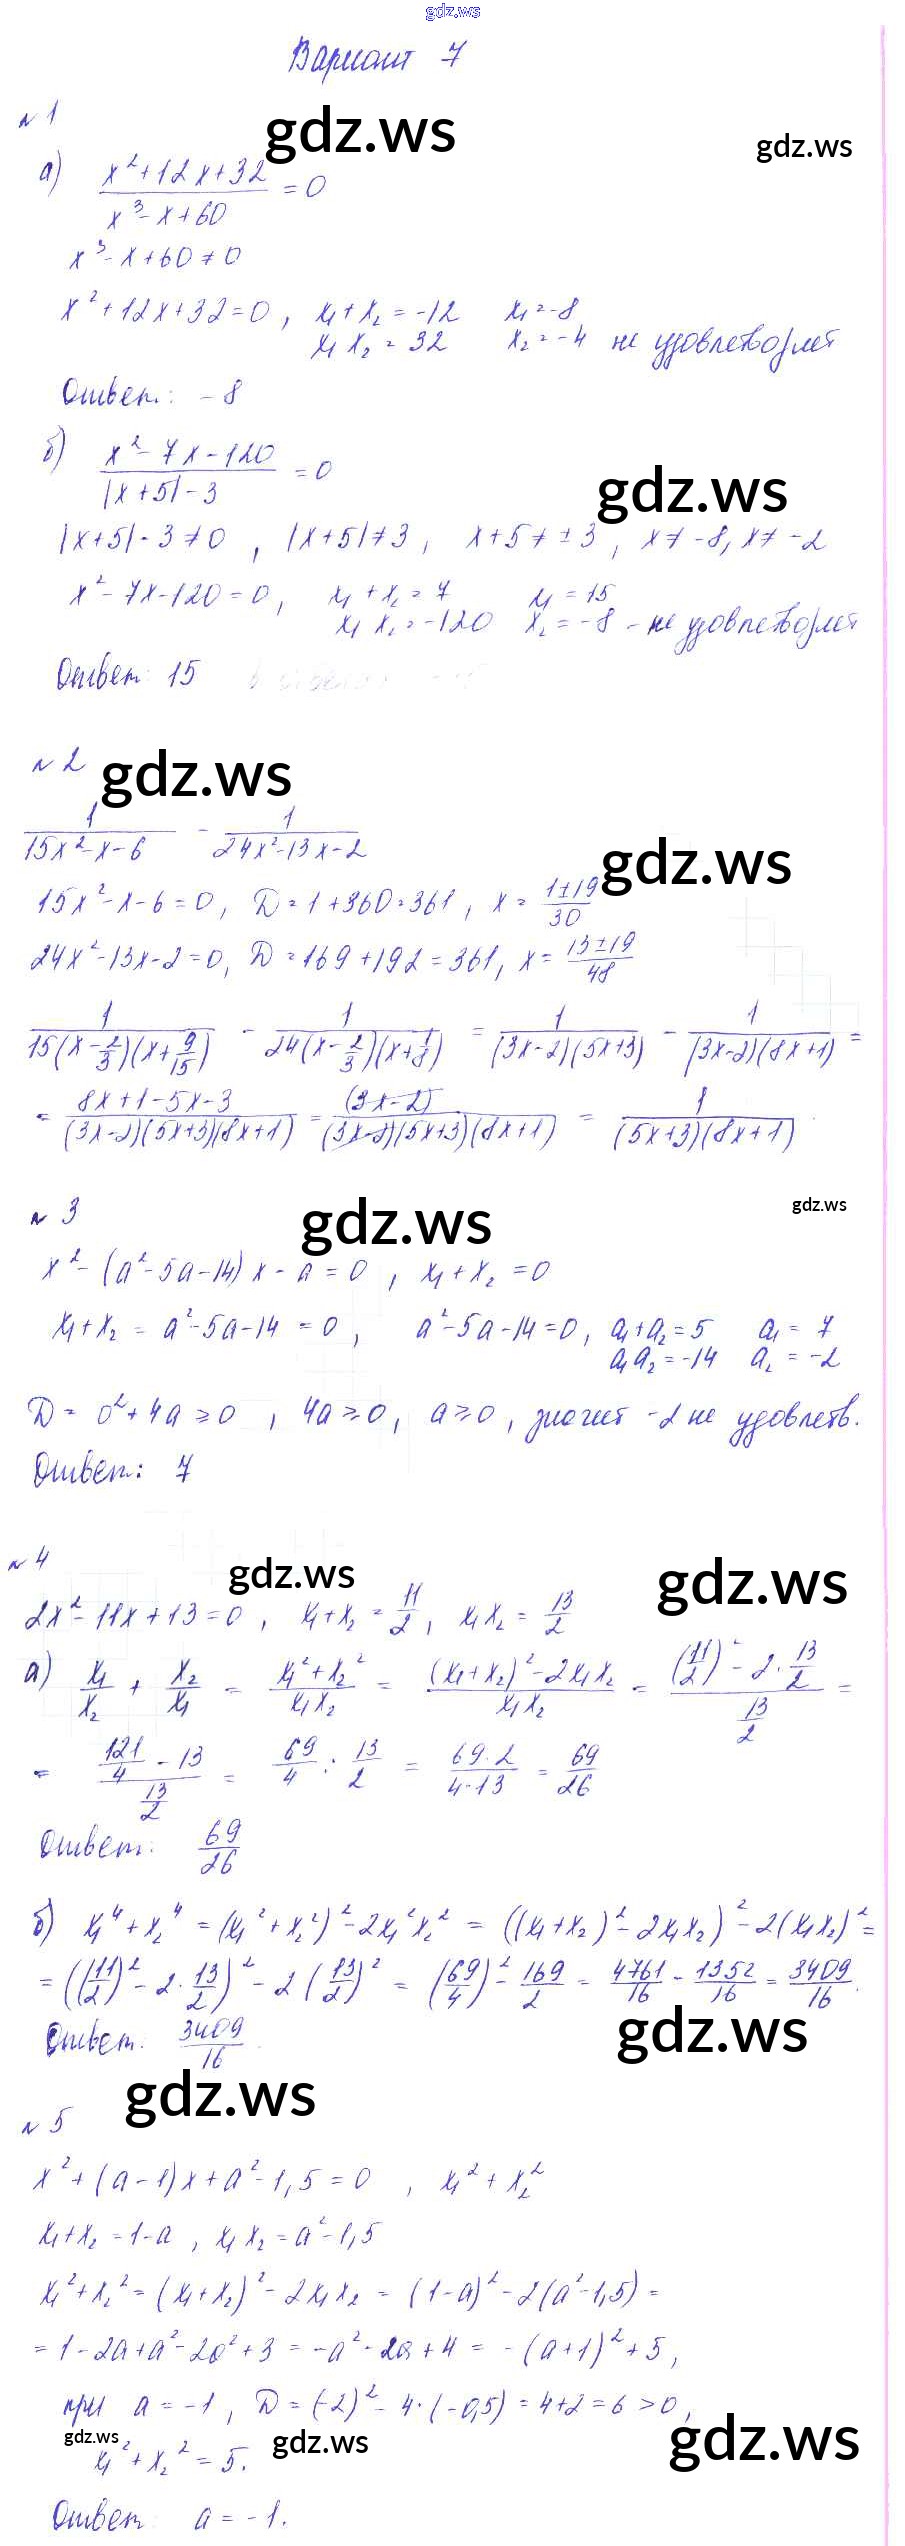 gdz.ws
Вариант 7
gdz.ws
gdz.ws
n 1
а) (x²+12x+32)/(x³-x+60) = 0
x³-x+60≠0
x²+12x+32=0, x₁+x₂=-12 x₁=-8
x₁x₂=32 x₂=-4 не удовлетворяет
Ответ: -8
б) (x²-7x-120)/(|x+5|-3) = 0
gdz.ws
|x+5|-3≠0, |x+5|≠3, x+5≠±3, x≠-8, x≠-2
x²-7x-120=0, x₁+x₂=7 x₁=15
x₁x₂=-120 x₂=-8 - не удовлетворяет
Ответ: 15
n 2
gdz.ws
1/(15x²-x-6) - 1/(24x²-13x-2)
gdz.ws
15x²-x-6=0, D=1+360=361, x=(1±19)/30
24x²-13x-2=0, D=169+192=361, x=(13±19)/48
1/(15(x-2/3)(x+9/15)) - 1/(24(x-2/3)(x+1/8)) = 1/((3x-2)(5x+3)) - 1/((3x-2)(8x+1)) =
= (8x+1-5x-3)/((3x-2)(5x+3)(8x+1)) = (3x-2)/((3x-2)(5x+3)(8x+1)) = 1/((5x+3)(8x+1)).
n 3
gdz.ws
gdz.ws
x²-(a²-5a-14)x-a=0, x₁+x₂=0
x₁+x₂=a²-5a-14=0, a²-5a-14=0, a₁+a₂=5 a₁=7
a₁a₂=-14 a₂=-2
D=0²+4a≥0, 4a≥0, a≥0, значит -2 не удовлетв.
Ответ: 7
n 4
gdz.ws
gdz.ws
2x²-11x+13=0, x₁+x₂=11/2, x₁x₂=13/2
а) x₁/x₂ + x₂/x₁ = (x₁²+x₂²)/(x₁x₂) = ((x₁+x₂)²-2x₁x₂)/(x₁x₂) = ((11/2)²-2·13/2)/(13/2) =
= (121/4-13)/(13/2) = 69/4 : 13/2 = (69·2)/(4·13) = 69/26
Ответ: 69/26
б) x₁⁴+x₂⁴=(x₁²+x₂²)²-2x₁²x₂²=((x₁+x₂)²-2x₁x₂)²-2(x₁x₂)²=
=((11/2)²-2·13/2)²-2(13/2)²=(69/4)²-169/2=4761/16-1352/16=3409/16.
gdz.ws
Ответ: 3409/16.
gdz.ws
n 5
x²+(a-1)x+a²-1,5=0, x₁²+x₂²
x₁+x₂=1-a, x₁x₂=a²-1,5
x₁²+x₂²=(x₁+x₂)²-2x₁x₂=(1-a)²-2(a²-1,5)=
=1-2a+a²-2a²+3=-a²-2a+4=-(a+1)²+5,
при a=-1, D=(-2)²-4·(-0,5)=4+2=6>0,
gdz.ws
gdz.ws
gdz.ws
x₁²+x₂²=5.
Ответ: a=-1.